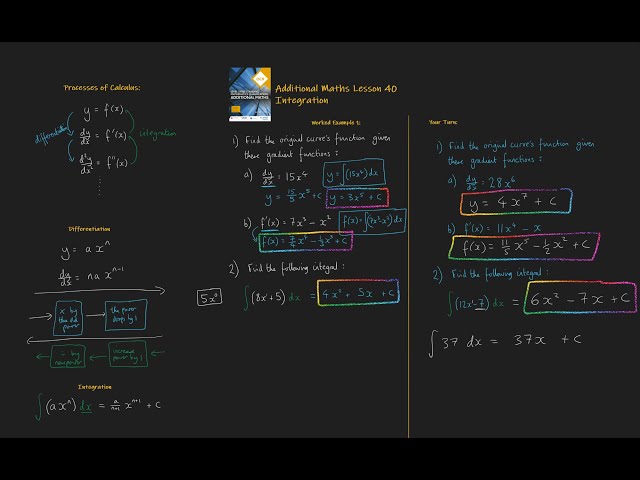 Processes of Calculus:
y = f(x)
differentiation
dy/dx = f'(x)
integration
d²y/dx² = f''(x)
Differentiation
y = a xⁿ
dy/dx = na xⁿ⁻¹
x by the old power
the power drops by 1
÷ by new power
increase power by 1
Integration
∫(a xⁿ) dx = a/(n+1) xⁿ⁺¹ + c
ADDITIONAL MATHS
Additional Maths Lesson 40
Integration
Worked Example 1:
1) Find the original curve's function given
these gradient functions:
a) dy/dx = 15x⁴
y = ∫(15x⁴) dx
y = 15/5 x⁵ + c
y = 3x⁵ + c
b) f'(x) = 7x³ − x²
f(x) = ∫(7x³ − x²) dx
f(x) = 7/4 x⁴ − 1/3 x³ + c
2) Find the following integral:
5x⁰
∫(8x + 5) dx = 4x² + 5x + c
Your Turn:
1) Find the original curve's function given
these gradient functions:
a) dy/dx = 28x⁶
y = 4x⁷ + c
b) f'(x) = 11x⁴ − x
f(x) = 11/5 x⁵ − 1/2 x² + c
2) Find the following integral:
∫(12x¹ − 7) dx = 6x² − 7x + c
∫ 37 dx = 37x + c